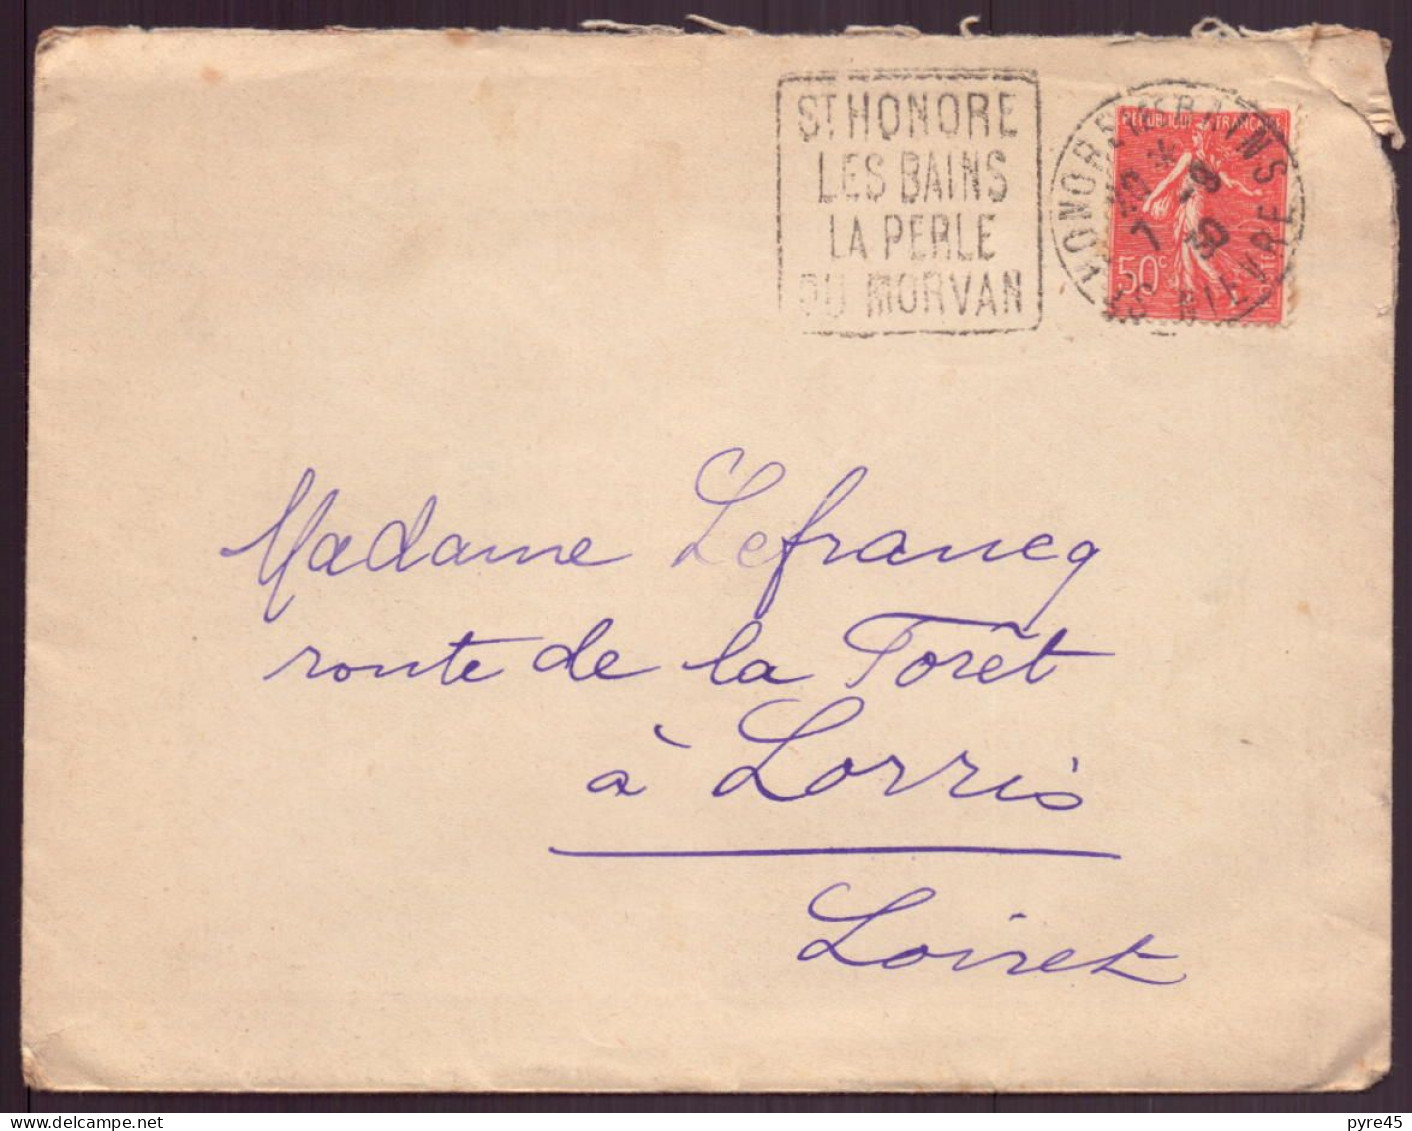 ST HONORE
LES BAINS
LA PERLE
DU MORVAN
ST HONORE LES BAINS
NIEVRE
7 -9
30
REPUBLIQUE FRANCAISE
50c
POSTES
Madame Lefrancq
route de la Forêt
à Lorris
Loiret
pyre45